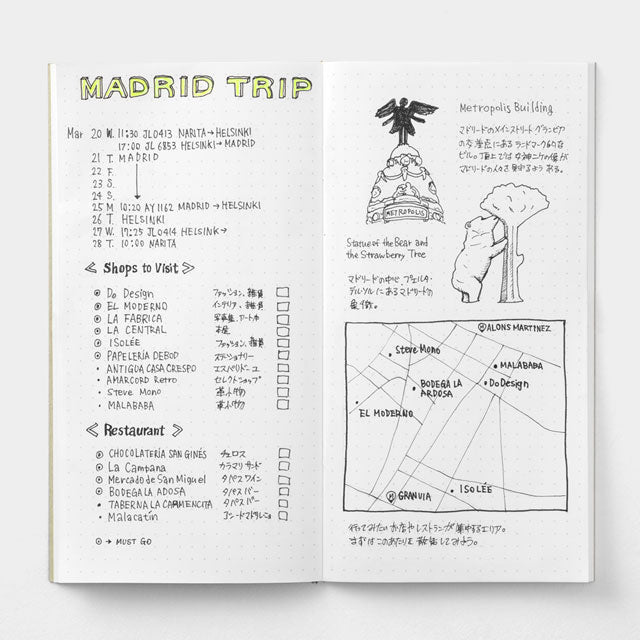 MADRID TRIP
Mar 20 W. 11:30 JL0413 NARITA→HELSINKI
17:00 JL6853 HELSINKI→MADRID
21 T. MADRID
22 F.
23 S.
24 S.
25 M 10:20 AY1162 MADRID→HELSINKI
26 T. HELSINKI
27 W. 17:25 JL0414 HELSINK→
28 T. 10:00 NARITA
≪ Shops to Visit ≫
◉ Do Design ファッション、雑貨
◉ EL MODERNO インテリア、雑貨
◉ LA FABRICA 写真集、アート本
◉ LA CENTRAL 本屋
◉ ISOLÉE ファッション、雑貨
◉ PAPELERÍA DEBOD ステーショナリー
・ ANTIGUA CASA CRESPO エスパドリーユ
・ AMARCORD Retro セレクトショップ
・ Steve Mono 革小物
・ MALABABA 革小物
≪ Restaurant ≫
◉ CHOCOLATERÍA SAN GINÉS チュロス
◉ La Campana カラマリサンド
◉ Mercado de San Miguel タパス ワイン
◉ BODEGA LA ADOSA タパス バー
・ TABERNA LA CARMENCITA タパス バー
・ Malacatín
◉ → MUST GO
Metropolis Building
マドリードのメインストリート グランビア
の交差点にあるランドマーク的な
ビル。頂上では女神ニケの像が
マドリードの人々を見守るようある。
METROPOLIS
Statue of the Bear and
the Strawberry Tree
マドリードの中心、プエルタ・
デル・ソルにあるマドリードの
象徴。
Ⓜ ALONS MARTINEZ
Steve Mono
MALABABA
BODEGA LA
ARDOSA
Do Design
EL MODERNO
ISOLÉE
Ⓜ GRANVIA
行ってみたいお店やレストランが集中するエリア。
まずはこのあたりを散策してみよう。